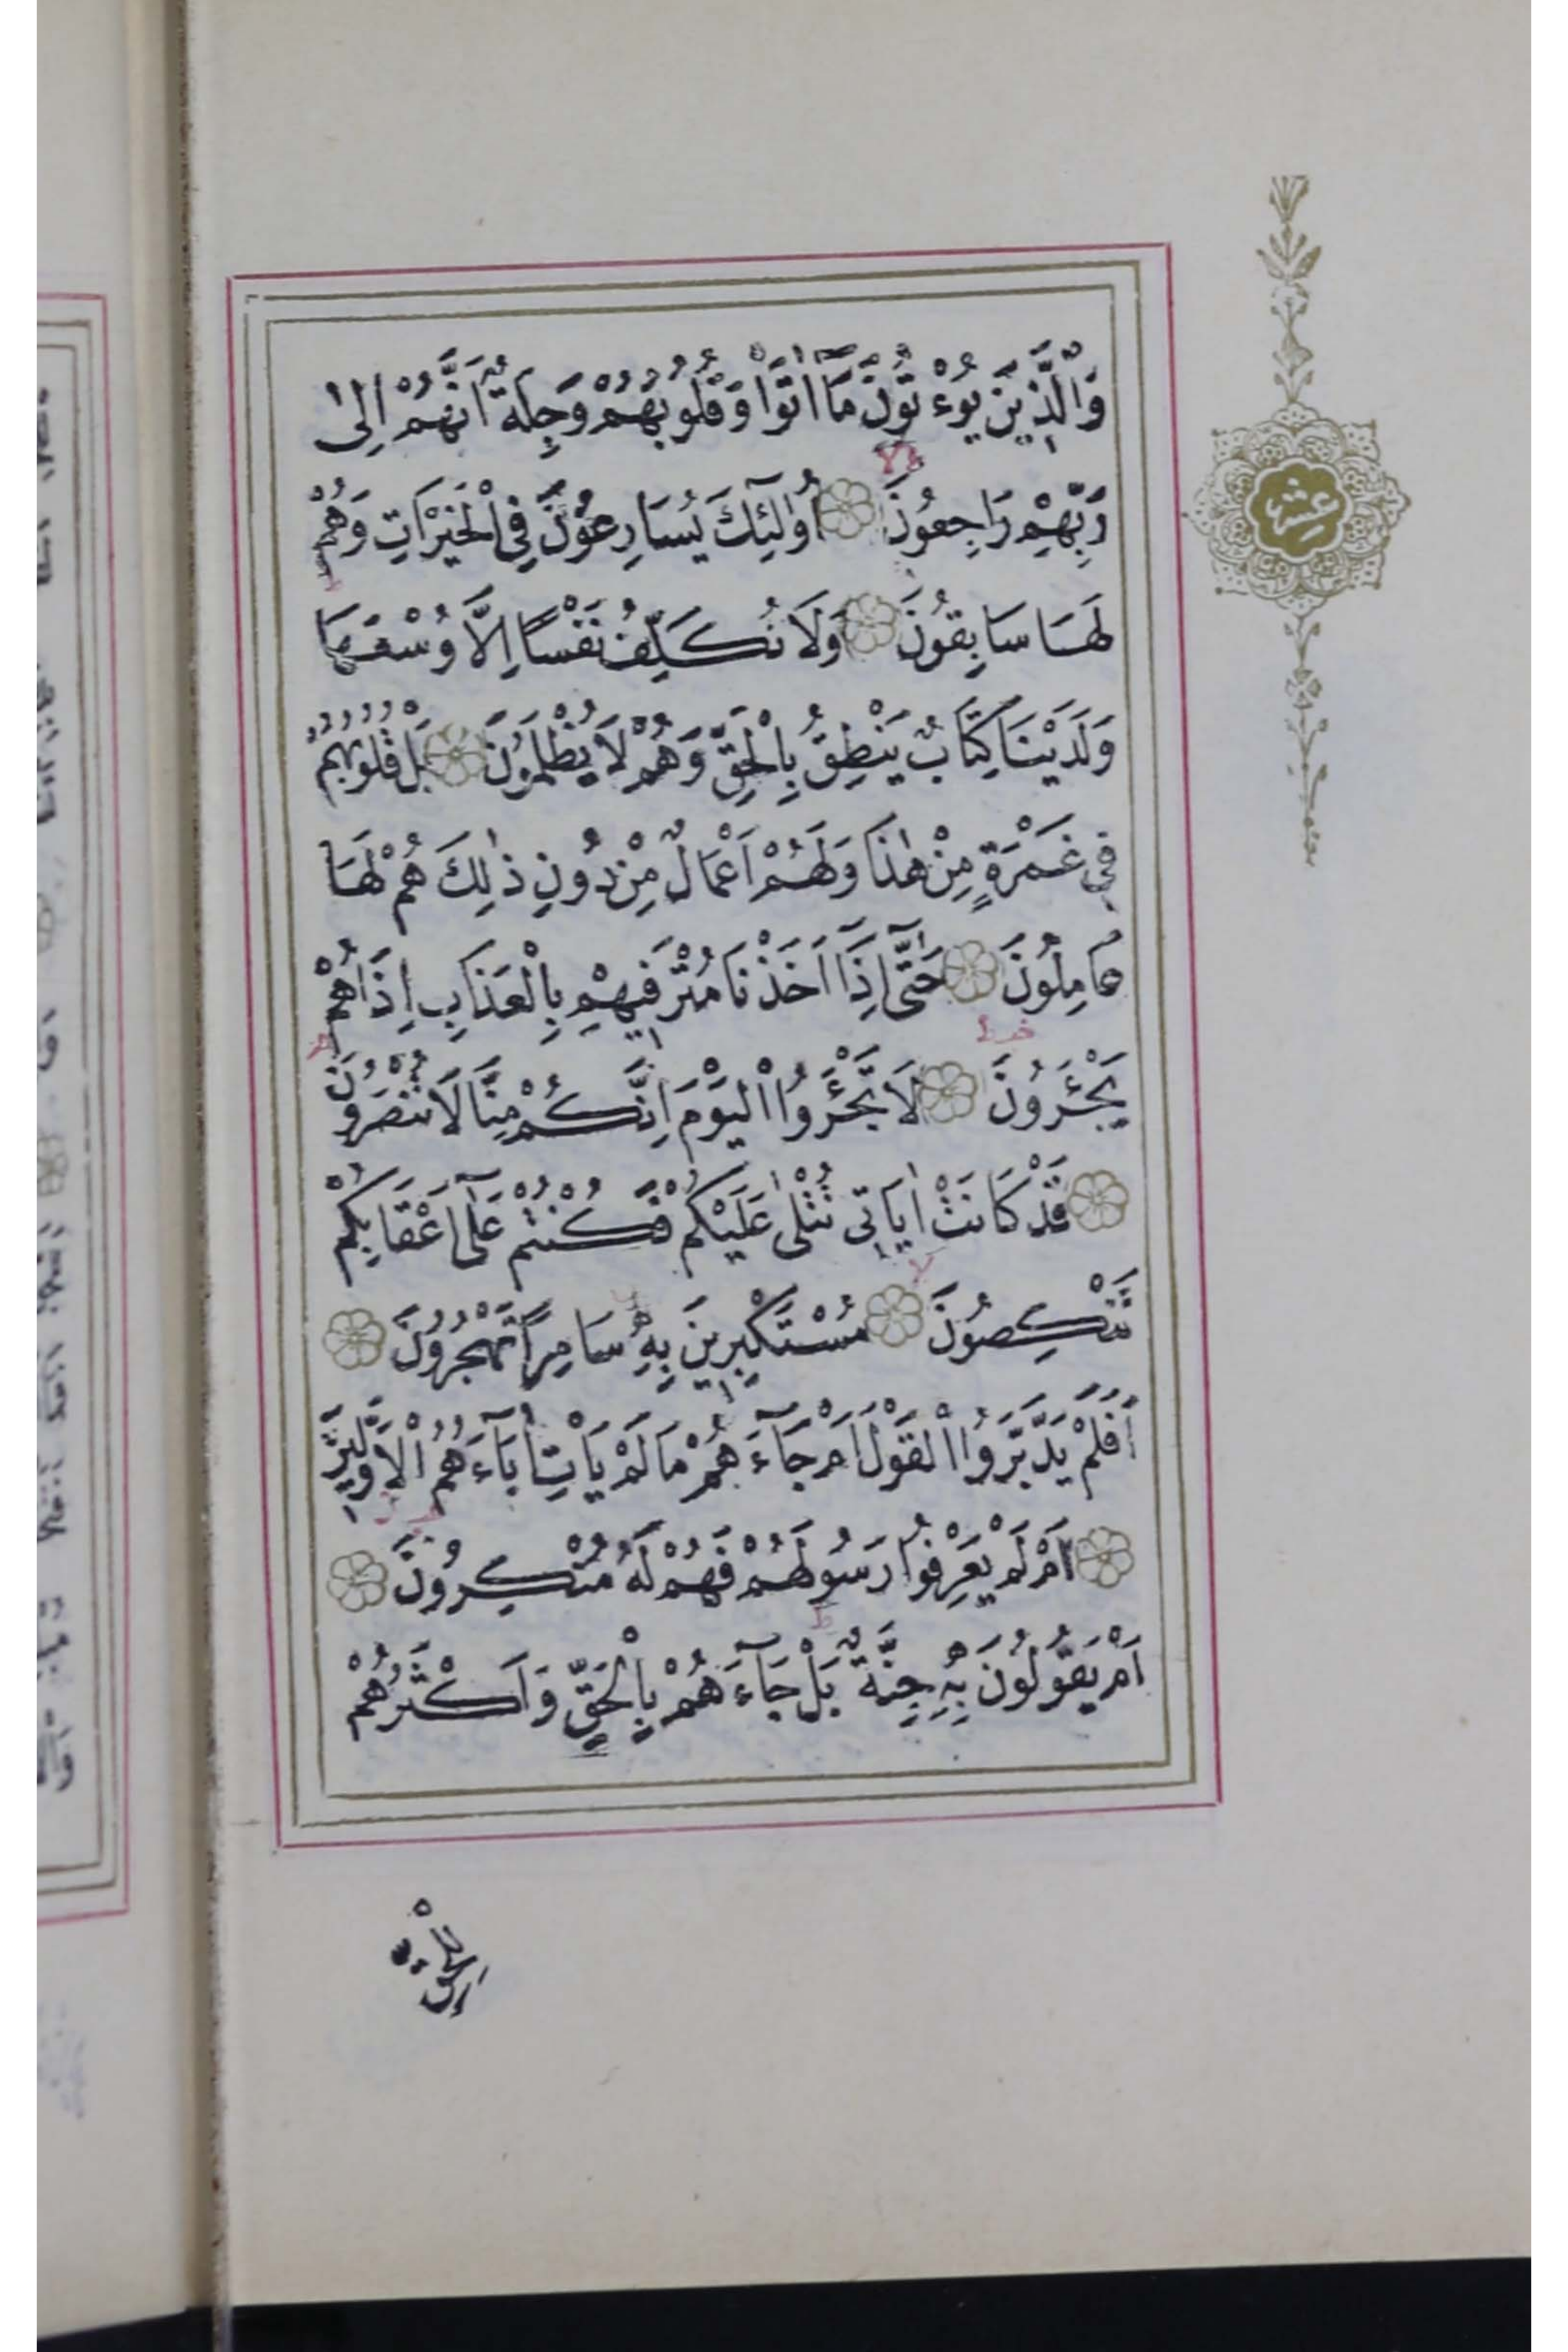 وَالَّذِينَ يُوءْتُونَ مَٓا اٰتَوْا وَقُلُوبُهُمْ وَجِلَةٌ اَنَّهُمْ اِلٰى
رَبِّهِمْ رَاجِعُونَ اُو۬لٰٓئِكَ يُسَارِعُونَ فِي الْخَيْرَاتِ وَهُمْ
لَهَا سَابِقُونَ وَلَا نُكَلِّفُ نَفْسًا اِلَّا وُسْعَهَا
وَلَدَيْنَا كِتَابٌ يَنْطِقُ بِالْحَقِّ وَهُمْ لَا يُظْلَمُونَ بَلْ قُلُوبُهُمْ
فِي غَمْرَةٍ مِنْ هٰذَا وَلَهُمْ اَعْمَالٌ مِنْ دُونِ ذٰلِكَ هُمْ لَهَا
عَامِلُونَ حَتّٰٓى اِذَٓا اَخَذْنَا مُتْرَفِيهِمْ بِالْعَذَابِ اِذَا هُمْ
يَجْـَٔرُونَ لَا تَجْـَٔرُوا الْيَوْمَ اِنَّكُمْ مِنَّا لَا تُنْصَرُونَ
قَدْ كَانَتْ اٰيَاتِي تُتْلٰى عَلَيْكُمْ فَكُنْتُمْ عَلٰٓى اَعْقَابِكُمْ
تَنْكِصُونَ مُسْتَكْبِرِينَ بِهِ سَامِرًا تَهْجُرُونَ
اَفَلَمْ يَدَّبَّرُوا الْقَوْلَ اَمْ جَٓاءَهُمْ مَا لَمْ يَاْتِ اٰبَٓاءَهُمُ الْاَوَّلِينَ
اَمْ لَمْ يَعْرِفُوا رَسُولَهُمْ فَهُمْ لَهُ مُنْكِرُونَ
اَمْ يَقُولُونَ بِهِ جِنَّةٌ بَلْ جَٓاءَهُمْ بِالْحَقِّ وَاَكْثَرُهُمْ
عشر
لِلْحَقِّ